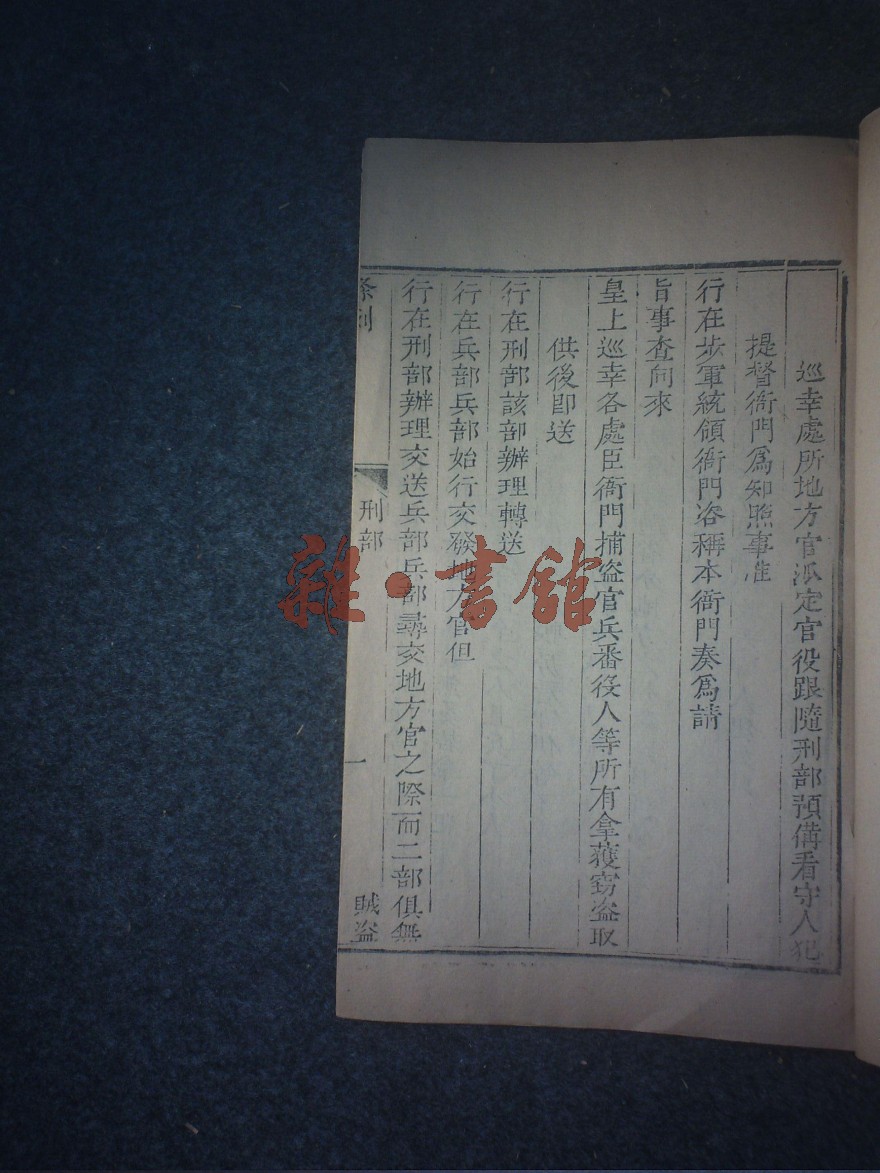 巡幸處所地方官派定官役跟隨刑部預俻看守人犯
提督衙門爲知照事准
行在步軍統領衙門咨稱本衙門奏爲請
旨事查向來
皇上巡幸各處臣衙門捕盗官兵番役人等所有拿獲窃盗取
供後即送
行在刑部該部辦理轉送
行在兵部兵部始行交發地方官但
行在刑部辦理交送兵部兵部尋交地方官之際而二部俱無
條例
刑部
一
賊盗
雜·書館